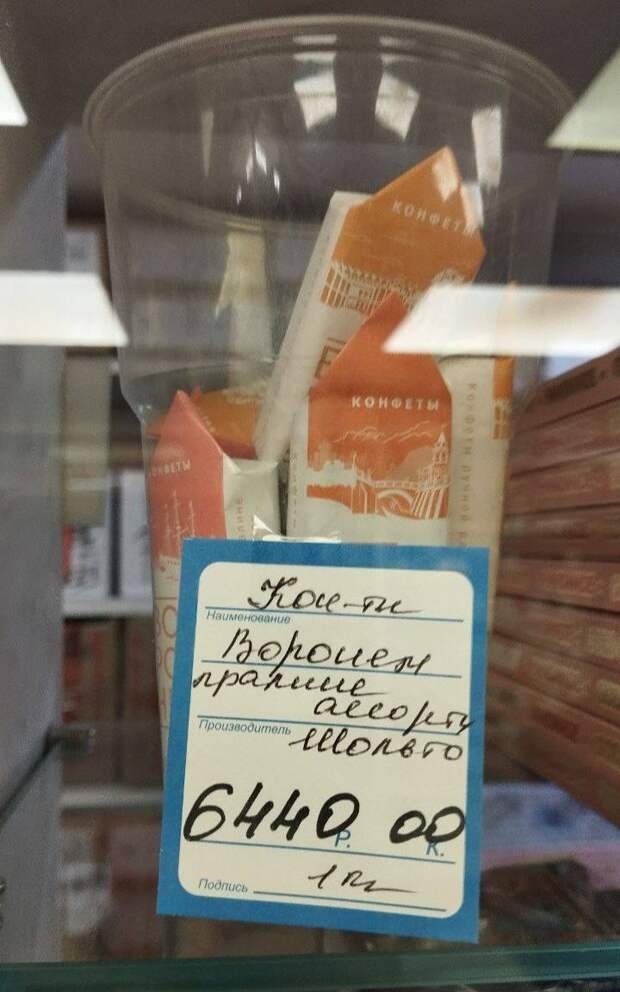 КОНФЕТЫ
КОНФЕТЫ
КОНФЕТЫ
Кон-ты
Наименование
Воронеж
пралине
ассорти
Производитель Шольто
6440 Р. 00 К.
Подпись 1 кг